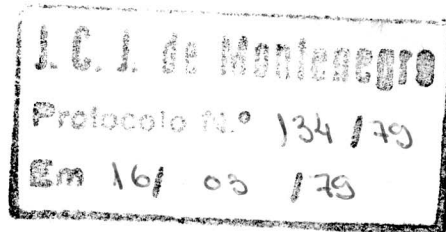 J. C. J. de Montenegro
Protocolo N.º 134 / 79
Em 16 / 03 / 79